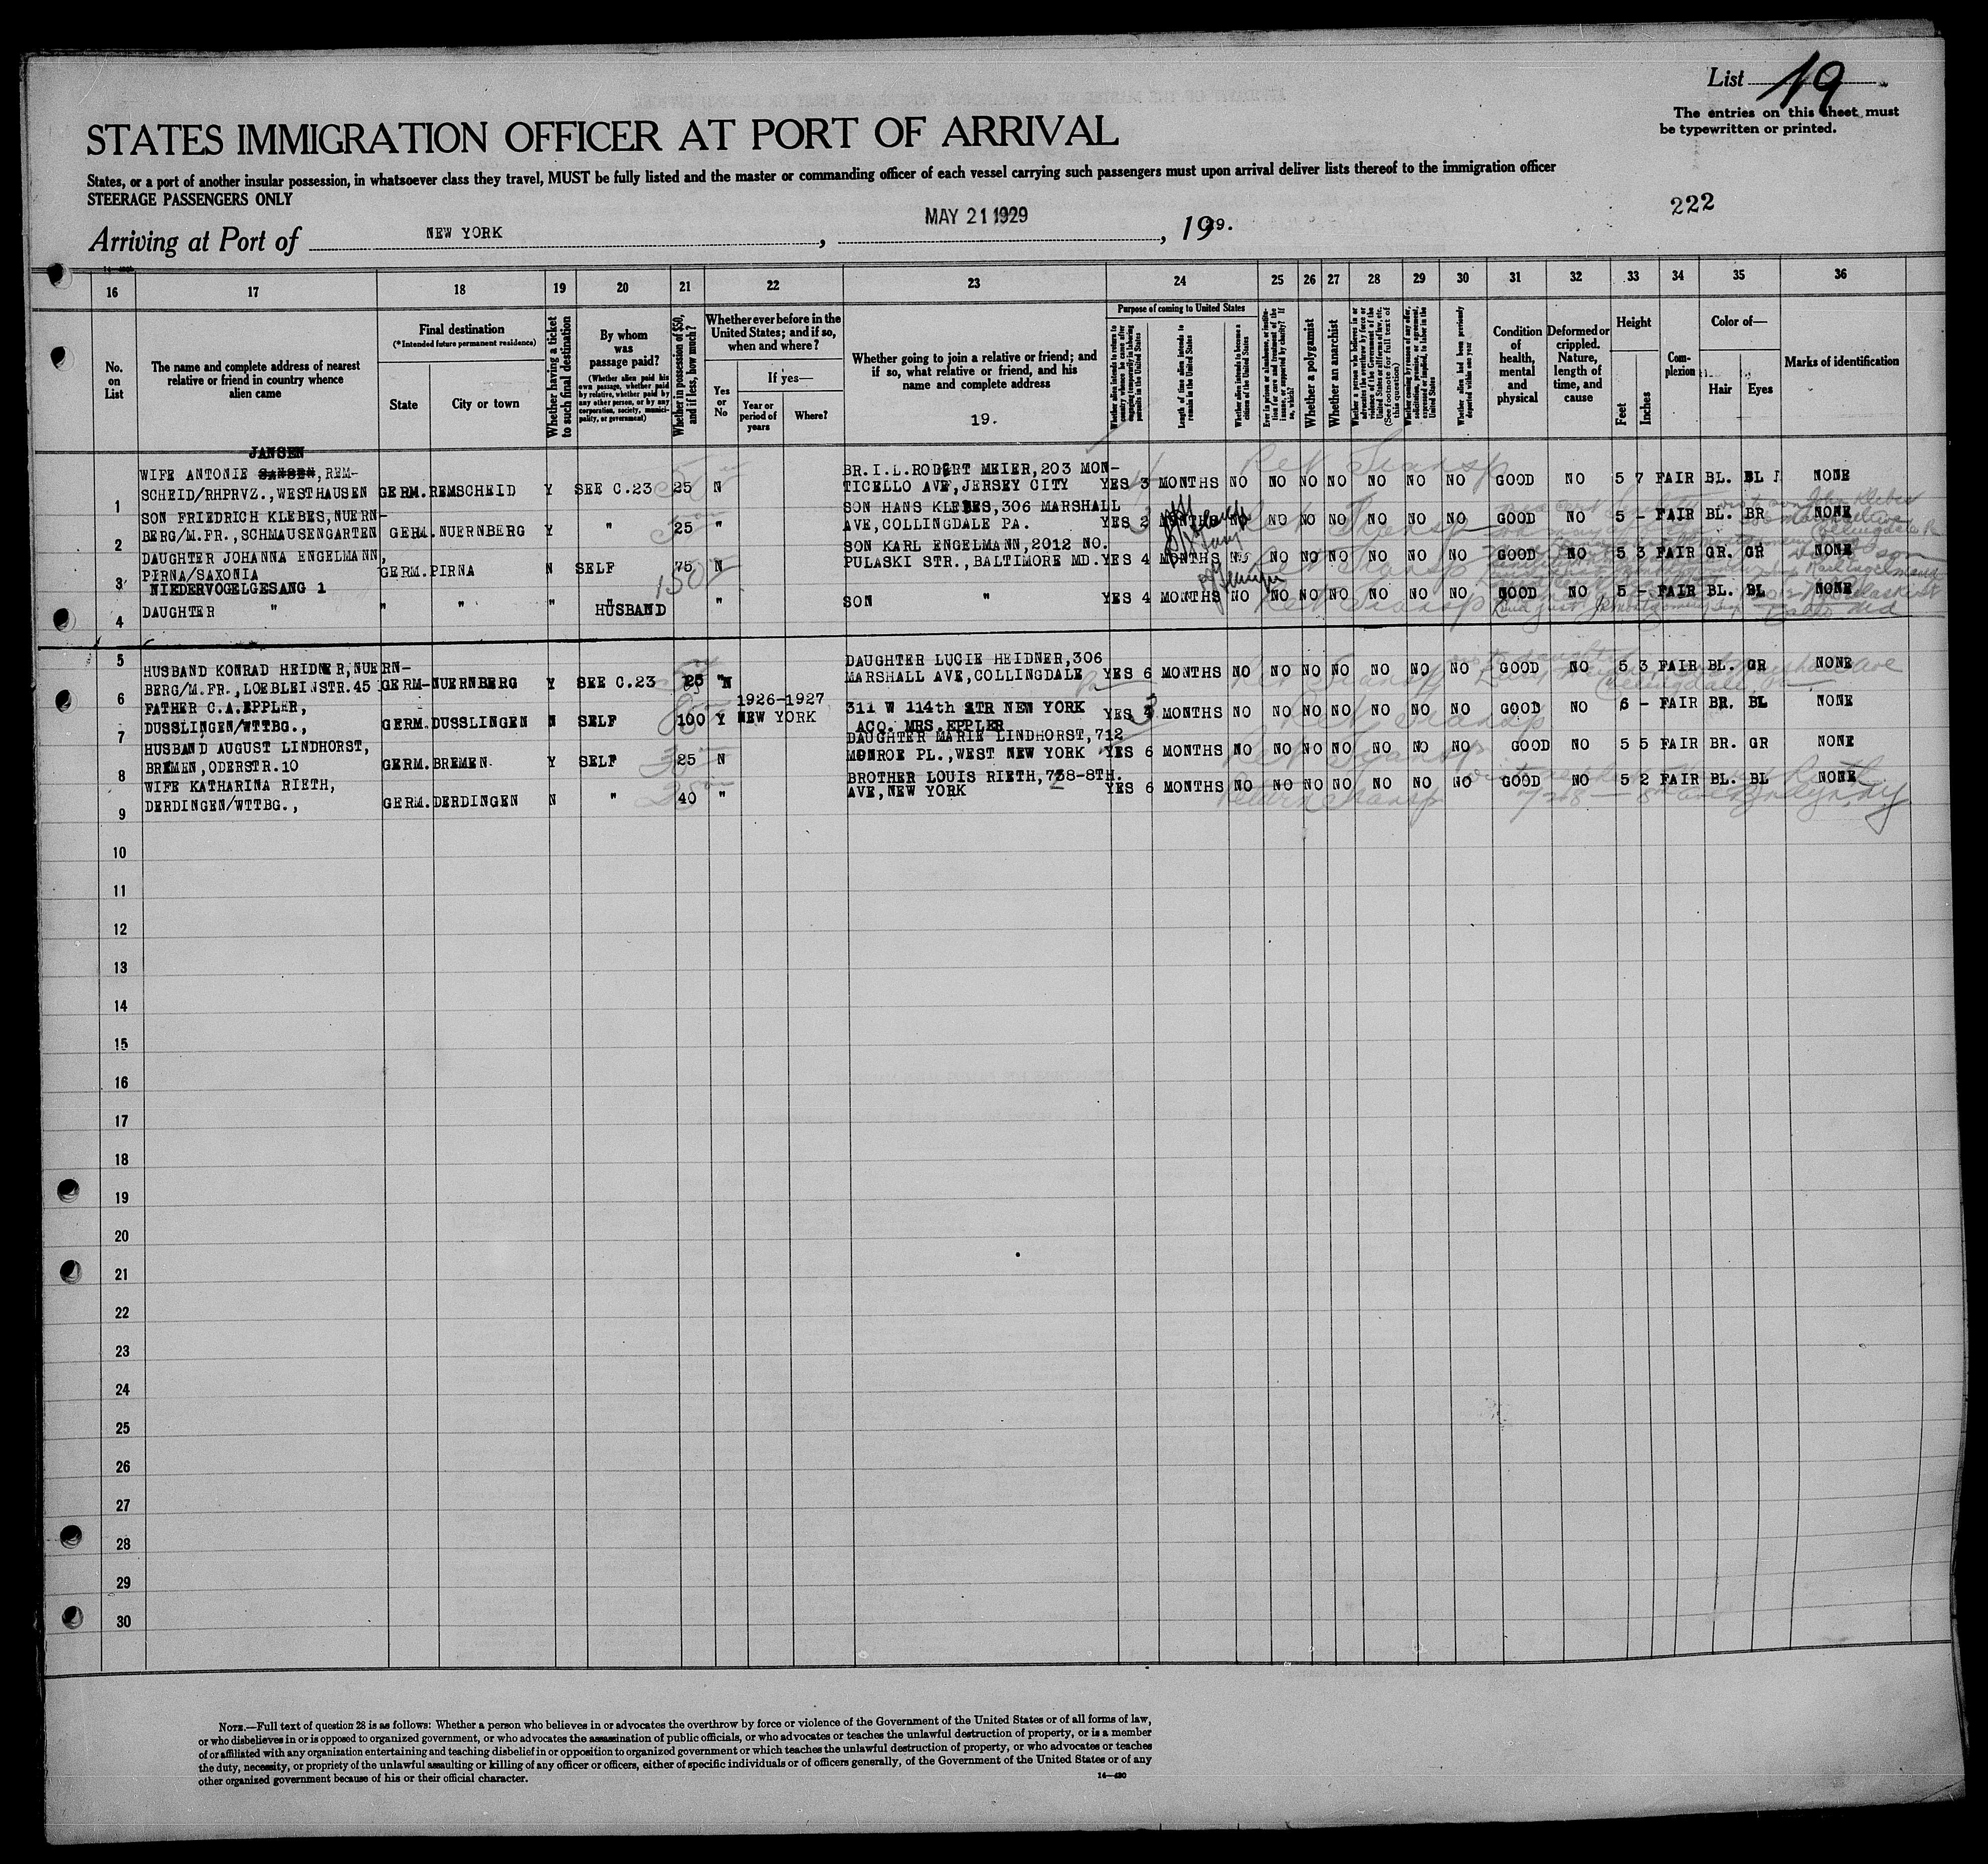 List 19
The entries on this sheet must
be typewritten or printed.
STATES IMMIGRATION OFFICER AT PORT OF ARRIVAL
States, or a port of another insular possession, in whatsoever class they travel, MUST be fully listed and the master or commanding officer of each vessel carrying such passengers must upon arrival deliver lists thereof to the immigration officer
STEERAGE PASSENGERS ONLY
222
Arriving at Port of NEW YORK, MAY 21 1929, 1929.
16 17 18 19 20 21 22 23 24 25 26 27 28 29 30 31 32 33 34 35 36
No. on List
The name and complete address of nearest relative or friend in country whence alien came
Final destination
(*Intended future permanent residence)
State
City or town
Whether having a ticket to such final destination
By whom was passage paid?
(Whether alien paid his own passage, whether paid by relative, whether paid by any other person, or by any corporation, society, municipality, or government)
Whether in possession of $50, and if less, how much?
Whether ever before in the United States; and if so, when and where?
Yes or No
If yes—
Year or period of years
Where?
Whether going to join a relative or friend; and if so, what relative or friend, and his name and complete address
19.
Purpose of coming to United States
Whether alien intends to return to country whence he came after engaging temporarily in laboring pursuits in the United States
Length of time alien intends to remain in the United States
Whether alien intends to become a citizen of the United States
Ever in prison or almshouse, or institution for care and treatment of the insane, or supported by charity? If so, which?
Whether a polygamist
Whether an anarchist
Whether a person who believes in or advocates the overthrow by force or violence of the Government of the United States or all forms of law, etc. (See footnote for full text of this question)
Whether coming by reason of any offer, solicitation, promise, or agreement, expressed or implied, to labor in the United States
Whether alien had been previously deported within one year
Condition of health, mental and physical
Deformed or crippled. Nature, length of time, and cause
Height
Feet
Inches
Complexion
Color of—
Hair
Eyes
Marks of identification
JANSEN
WIFE ANTONIE JANSEN, REM-
SCHEID/RHPRVZ., WESTHAUSEN GERM. REMSCHEID Y SEE C.23 25 N BR.I.L. ROBERT MEIER, 203 MON-
TICELLO AVE, JERSEY CITY YES 3 MONTHS NO NO NO NO NO NO NO GOOD NO 5 7 FAIR BL. BL NONE
1
Ret Transp
SON FRIEDRICH KLEBES, NUERN-
BERG/M.FR., SCHMAUSENGARTEN GERM. NUERNBERG Y " 25 " SON HANS KLEBES, 306 MARSHALL
AVE, COLLINGDALE PA. YES 2 MONTHS NO NO NO NO NO NO NO GOOD NO 5 - FAIR BL. BR NONE
2
Ret Transp
DAUGHTER JOHANNA ENGELMANN,
PIRNA/SAXONIA GERM. PIRNA N SELF 75 N SON KARL ENGELMANN, 2012 NO.
PULASKI STR., BALTIMORE MD. YES 4 MONTHS NO NO NO NO NO NO NO GOOD NO 5 3 FAIR GR. GR NONE
3 NIEDERVOGELGESANG 1
150
Ret Transp
DAUGHTER " " " " " HUSBAND " SON " YES 4 MONTHS NO NO NO NO NO NO NO GOOD NO 5 - FAIR BL. BL NONE
4
Ret Transp
5
HUSBAND KONRAD HEIDNER, NUERN-
BERG/M.FR., LOEBLEINSTR.45 GERM- NUERNBERG Y SEE C.23 25 "N DAUGHTER LUCIE HEIDNER, 306
MARSHALL AVE, COLLINGDALE YES 6 MONTHS NO NO NO NO NO NO NO GOOD NO 5 3 FAIR BL. GR NONE
6
Ret Transp
FATHER C.A. EPPLER,
DUSSLINGEN/WTTBG., GERM. DUSSLINGEN N SELF 100 Y 1926-1927
NEW YORK 311 W 114th STR NEW YORK
ACC. MRS. EPPLER YES 3 MONTHS NO NO NO NO NO NO NO GOOD NO 6 - FAIR BR. BL NONE
7
Ret Transp
HUSBAND AUGUST LINDHORST,
BREMEN, ODERSTR.10 GERM. BREMEN. Y SELF 25 N DAUGHTER MARIE LINDHORST, 712
MONROE PL., WEST NEW YORK YES 6 MONTHS NO NO NO NO NO NO NO GOOD NO 5 5 FAIR BR. GR NONE
8
Ret Transp
WIFE KATHARINA RIETH,
DERDINGEN/WTTBG., GERM. DERDINGEN N " 40 " BROTHER LOUIS RIETH, 738-8TH.
AVE, NEW YORK YES 6 MONTHS NO NO NO NO NO NO NO GOOD NO 5 2 FAIR BL. BL NONE
9
Return Transp
10
11
12
13
14
15
16
17
18
19
20
21
22
23
24
25
26
27
28
29
30
NOTE.—Full text of question 28 is as follows: Whether a person who believes in or advocates the overthrow by force or violence of the Government of the United States or of all forms of law,
or who disbelieves in or is opposed to organized government, or who advocates the assassination of public officials, or who advocates or teaches the unlawful destruction of property, or is a member
of or affiliated with any organization entertaining and teaching disbelief in or opposition to organized government or which teaches the unlawful destruction of property, or who advocates or teaches
the duty, necessity, or propriety of the unlawful assaulting or killing of any officer or officers, either of specific individuals or of officers generally, of the Government of the United States or of any
other organized government because of his or their official character.
14—430